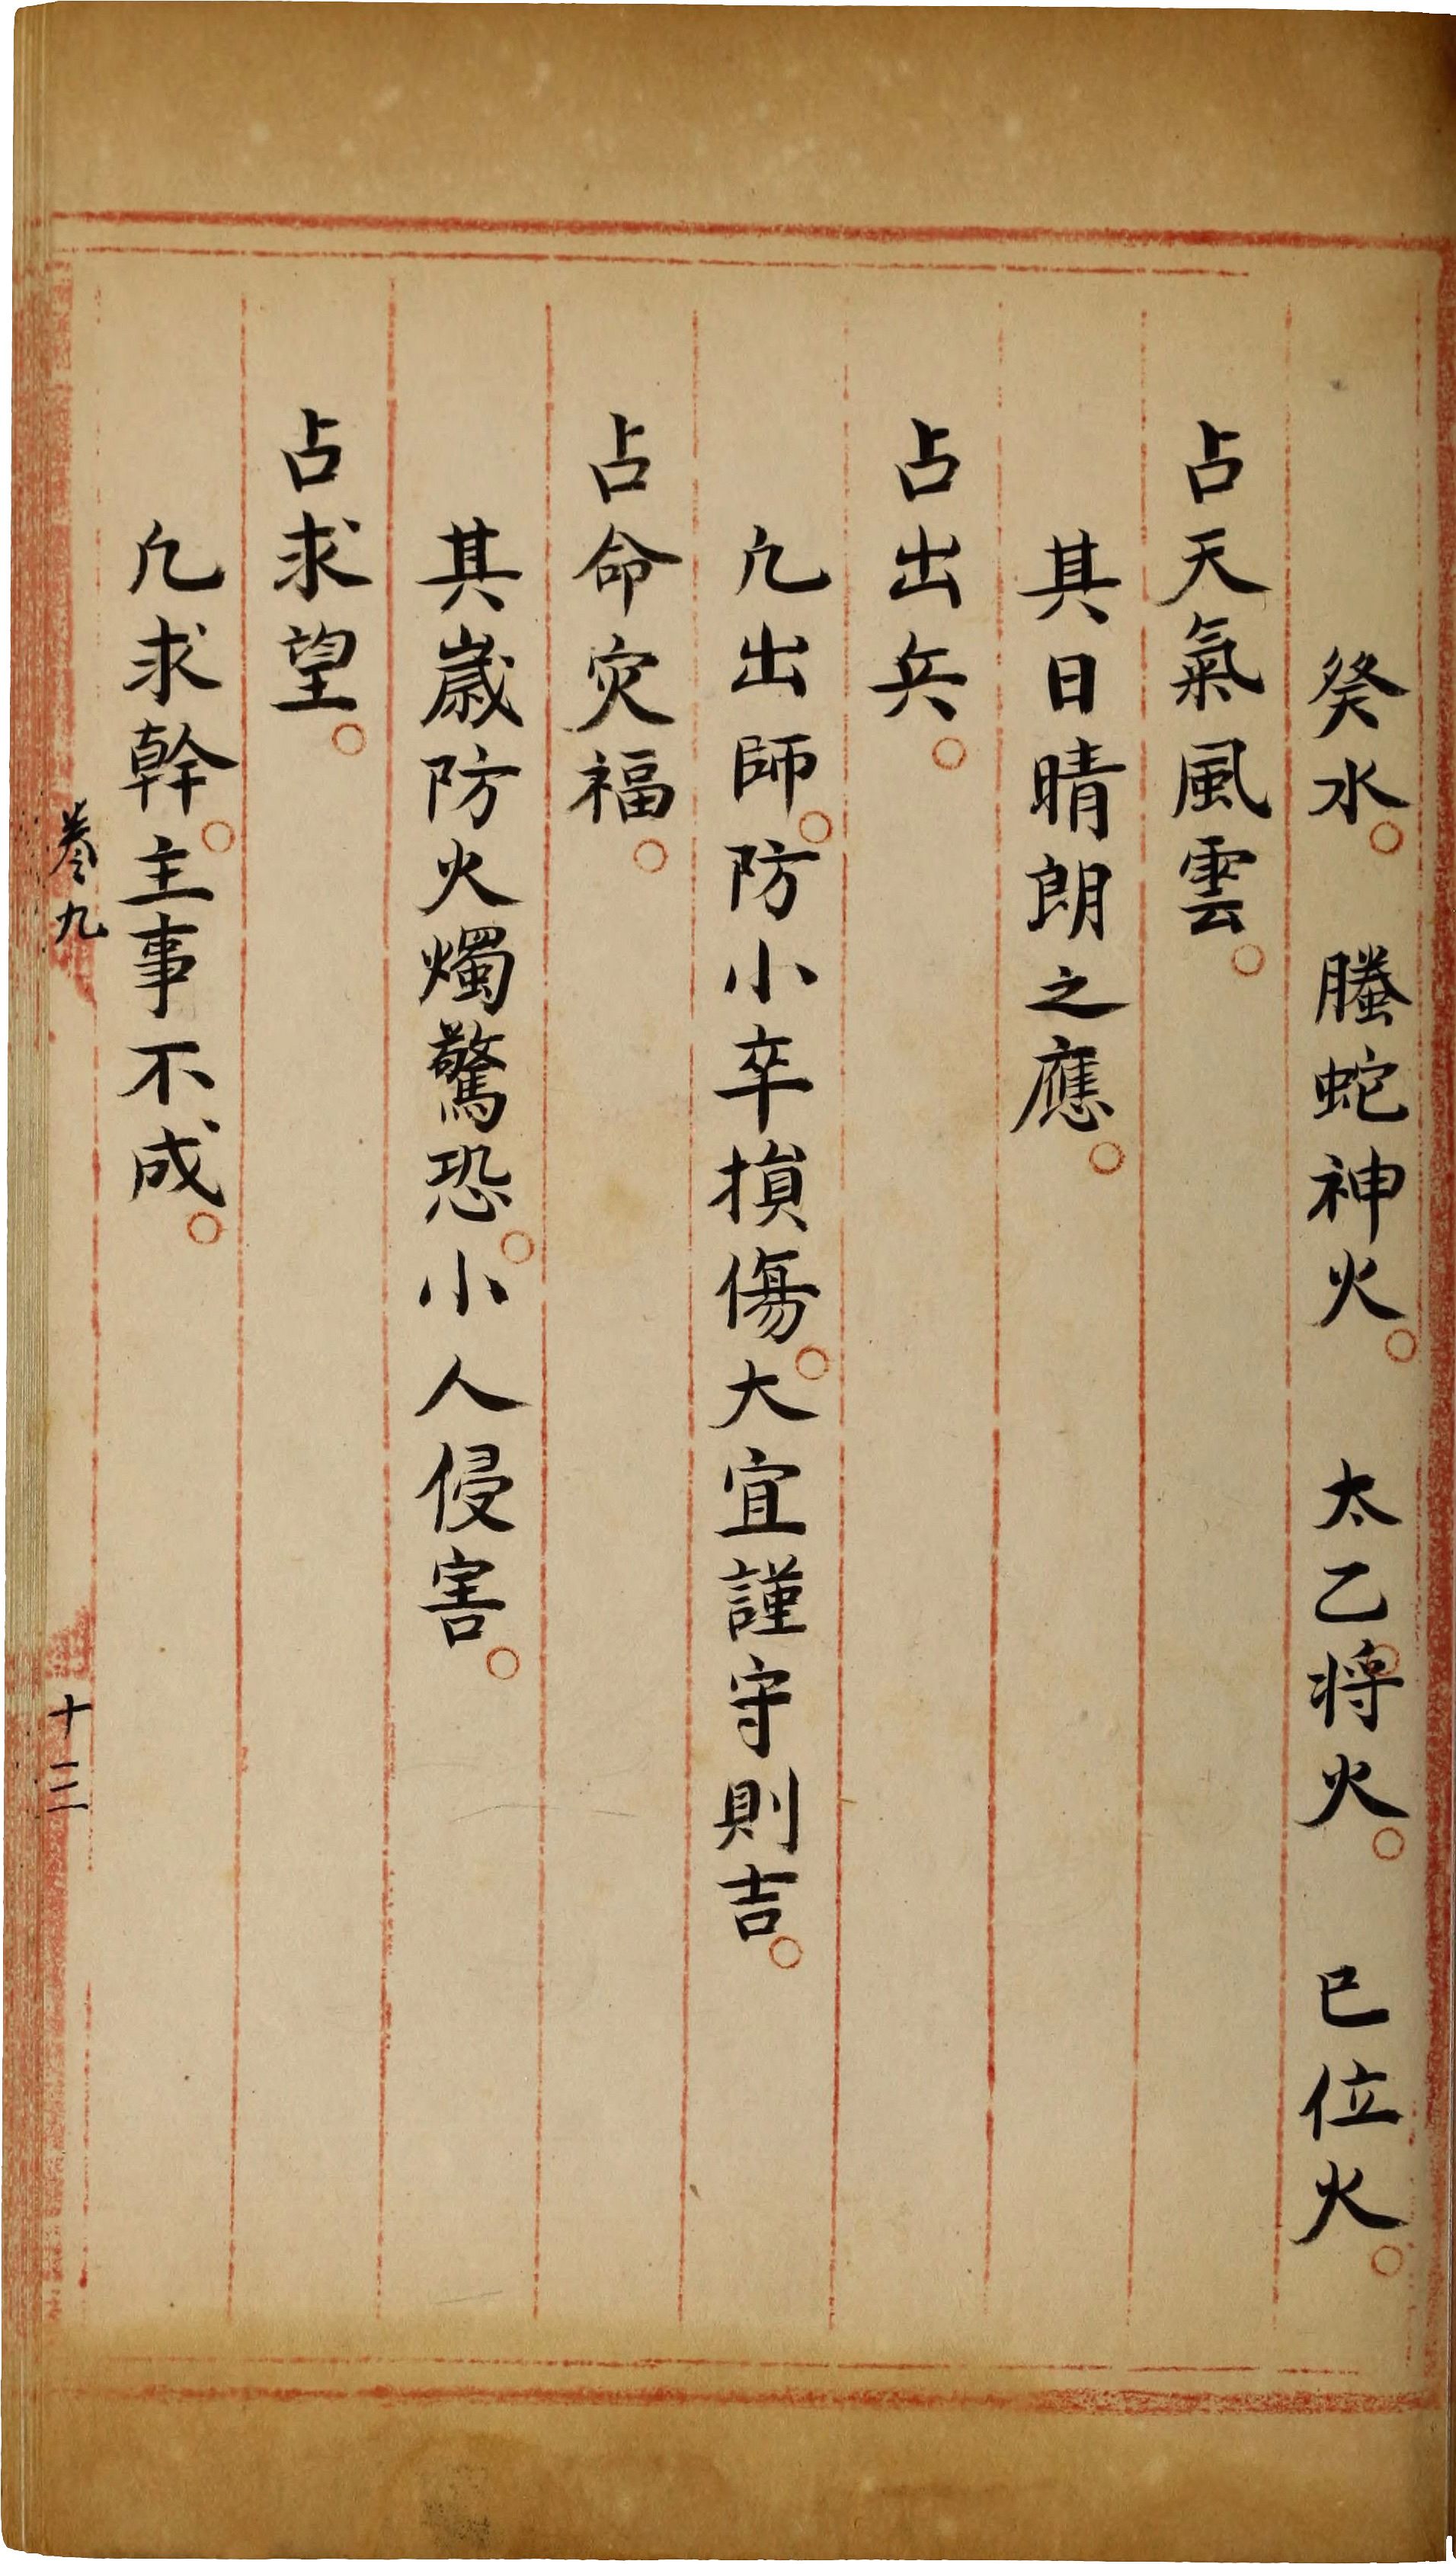 癸水。　螣蛇神火。　太乙。将火。　巳位火。
占天氣風雲。
其日晴朗之應。
占出兵。
凢出師。防小卒損傷。大宜謹守則吉。
占命灾福。
其歳防火燭驚恐。小人侵害。
占求望。
凢求幹。主事不成。
卷九
十三